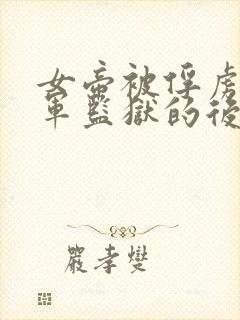 女帝被俘虏
军监狱的後
严孝燮